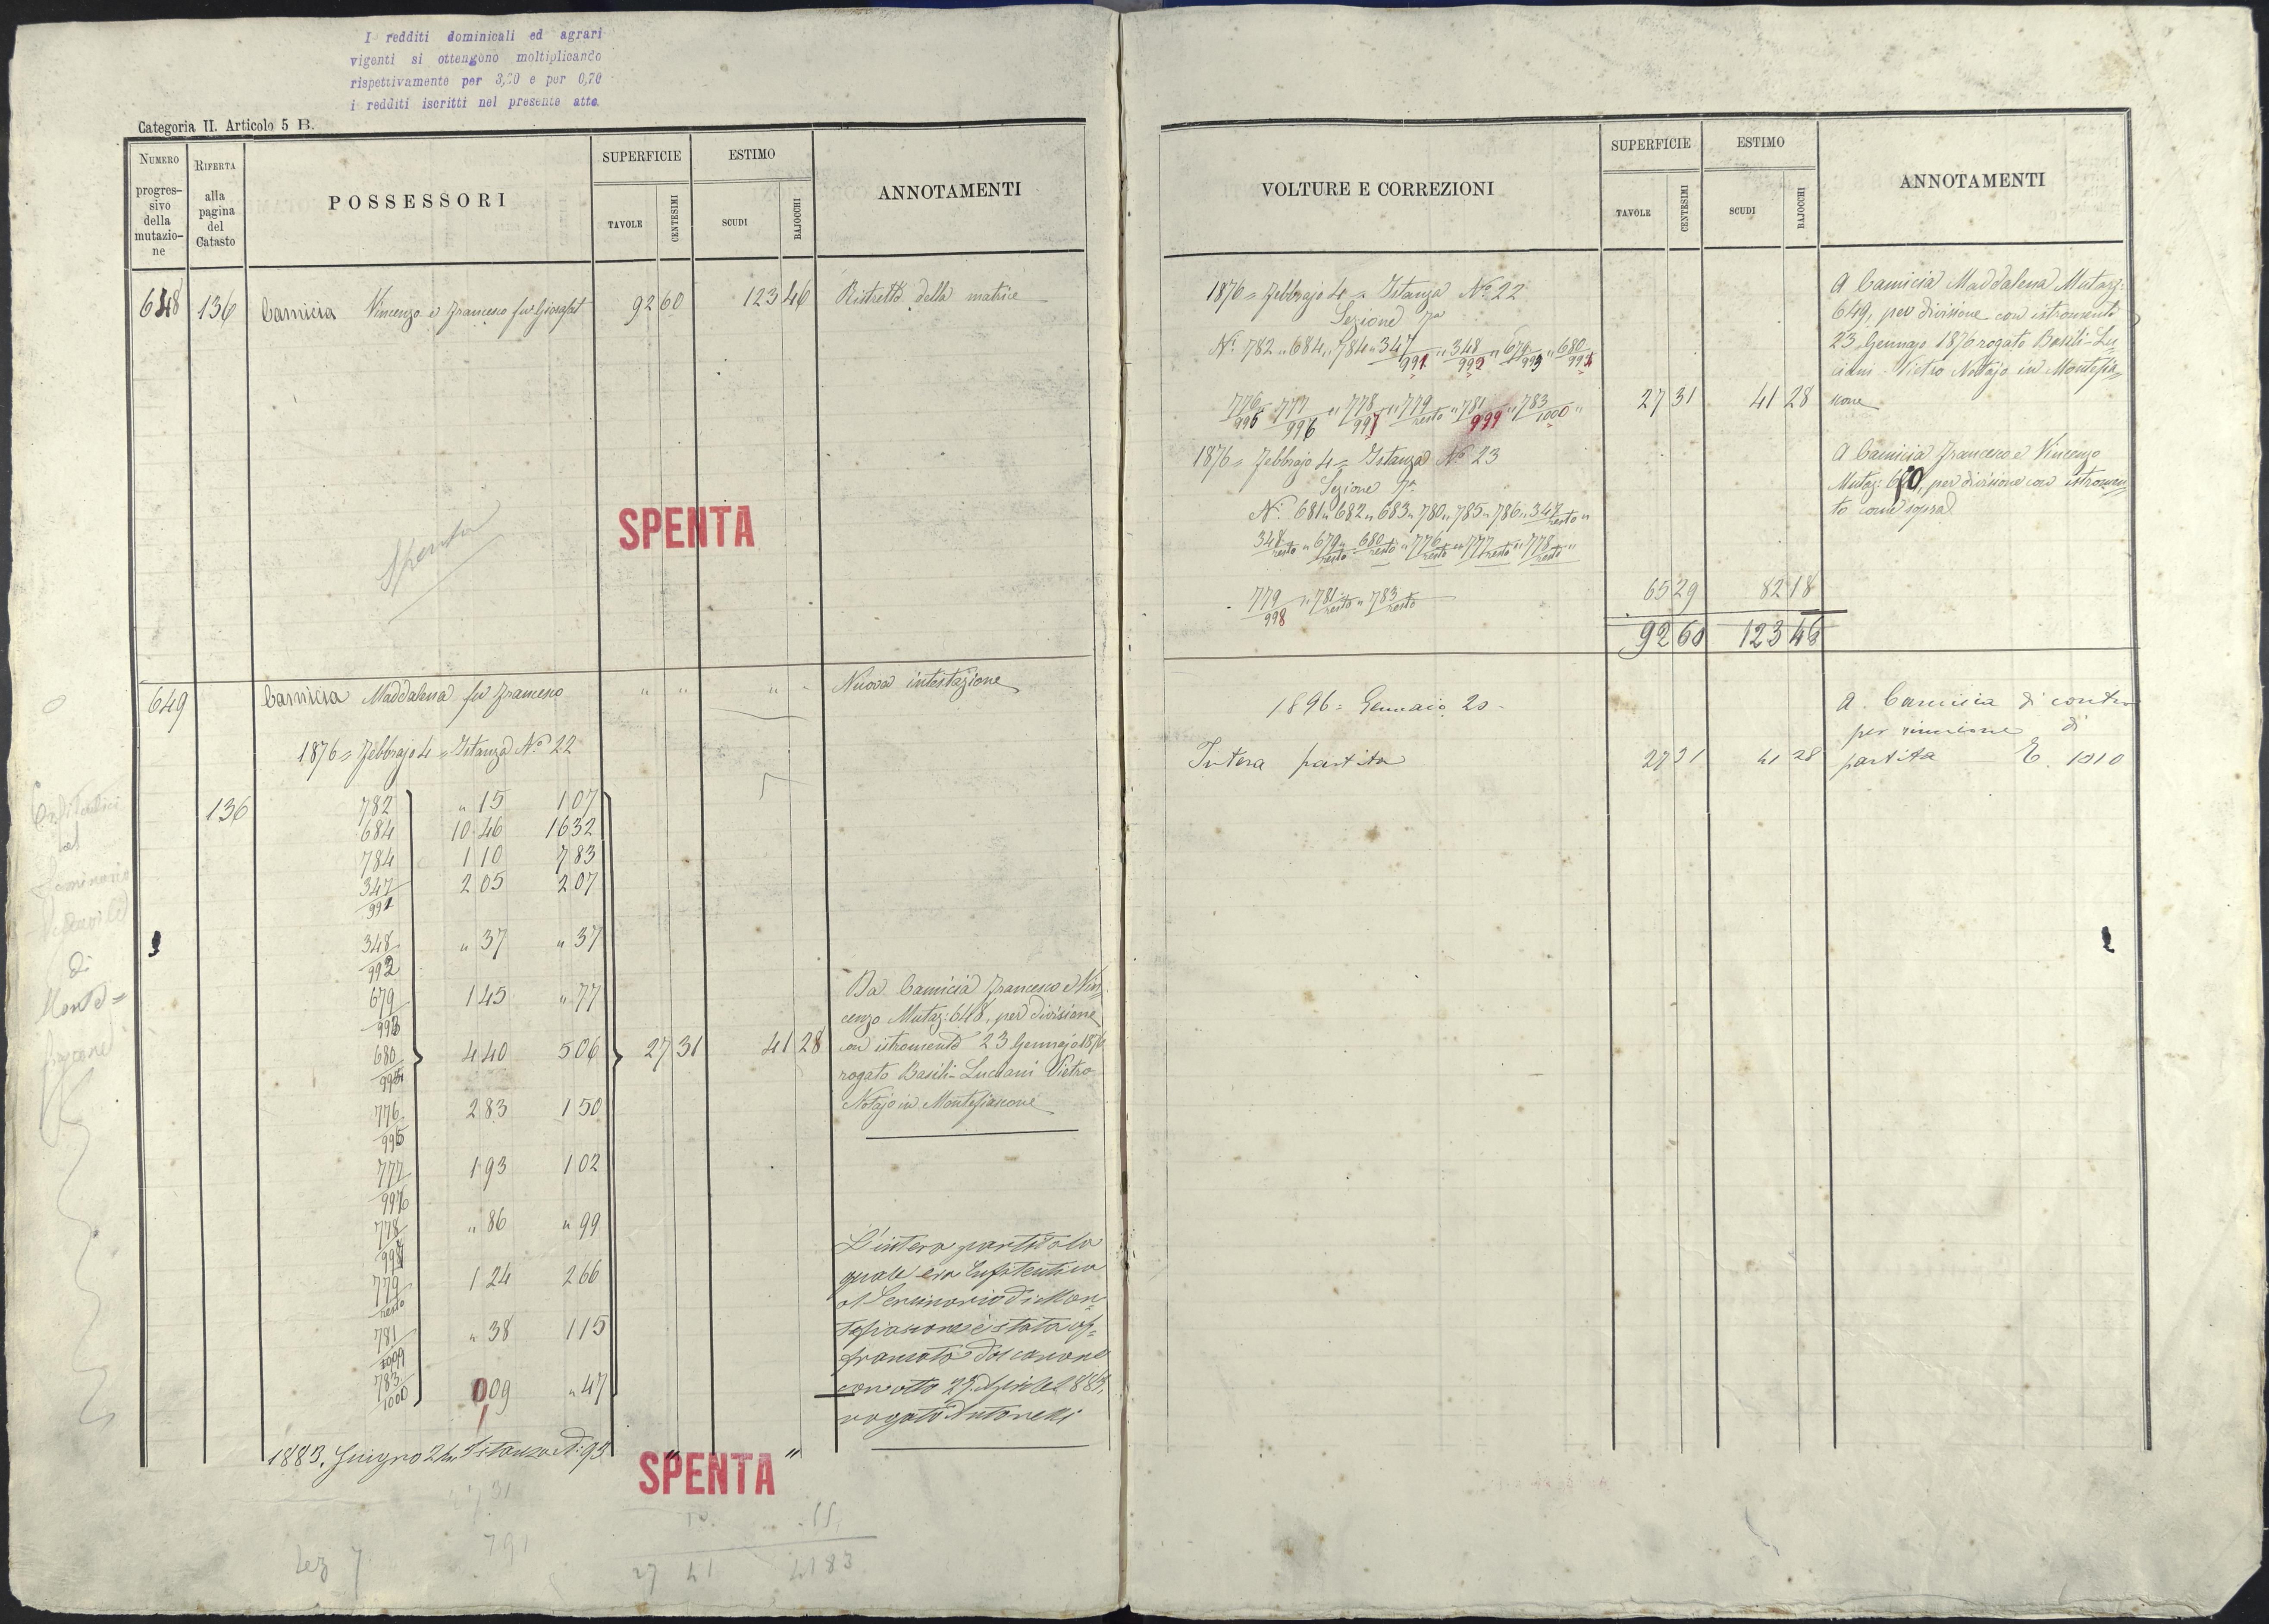 I redditi dominicali ed agrari
vigenti si ottengono moltiplicando
rispettivamente per 3,20 e per 0,70
i redditi iscritti nel presente atto.
Categoria II. Articolo 5 B.
NUMERO progres- sivo della mutazio- ne
RIFERTA alla pagina del Catasto
POSSESSORI
SUPERFICIE
TAVOLE CENTESIMI
ESTIMO
SCUDI BAJOCCHI
ANNOTAMENTI
648 136 Camicia Vincenzo e Francesco fu Giosafat 92 60 123 46 Ristretto della matrice
Spenta
SPENTA
649 Camicia Maddalena fu Francesco " " " " Nuova intestazione
1876 = Febbrajo 4 = Istanza N.o 22
136 782 " 15 1 07
684 10 46 16 32
784 1 10 7 83
347/991 2 05 2 07
348/992 " 37 " 37
679/993 1 45 " 77
680/994 4 40 5 06
776/995 2 83 1 50
777/996 1 93 1 02
778/997 " 86 " 99
779/resto 1 24 2 66
781/999 " 38 1 15
783/1000 0 09 " 47
27 31 41 28
Da Camicia Francesco e Vin=
cenzo Mutaz: 648, per divisione
con istromento 23 Gennajo 1876
rogato Basili-Luciani Pietro
Notajo in Montefiascone
L'intera partita la
quale era Enfiteutica
al Seminario di Mon=
tefiascone è stata af=
francata dal canone
con atto 25 Aprile 1883,
rogato Antonelli
1883, Giugno 24, Istanza N: 93 " "
SPENTA
al
di
Monte=
fiascone
27 31
791
Sez 7
27 41 41 83
VOLTURE E CORREZIONI
SUPERFICIE
TAVOLE CENTESIMI
ESTIMO
SCUDI BAJOCCHI
ANNOTAMENTI
1876 = Febbrajo 4 = Istanza N.o 22
Sezione 7a
N.o 782 " 684 " 784 " 347/991 " 348/992 " 679/993 " 680/994
776/995 777/996 " 778/997 " 779/resto " 781/999 " 783/1000 " 27 31 41 28
A Camicia Maddalena Mutaz:
649, per divisione con istromento
23 Gennajo 1876 rogato Basili-Lu=
ciani Pietro Notajo in Montefia=
scone
1876 = Febbrajo 4 = Istanza N.o 23
Sezione 7a
N.o 681 " 682 " 683 " 780 " 785 " 786 " 347/resto "
348/resto " 679/resto " 680/resto " 776/resto " 777/resto " 778/resto "
779/998 " 781/resto " 783/resto 65 29 82 18
92 60 123 46
A Camicia Francesco e Vincenzo
Mutaz: 650, per divisione con istromen=
to come sopra
1896 = Gennaio 20 -
Intera partita 27 31 41 28
A Camicia di contro
per riunione di
partita T. 1010